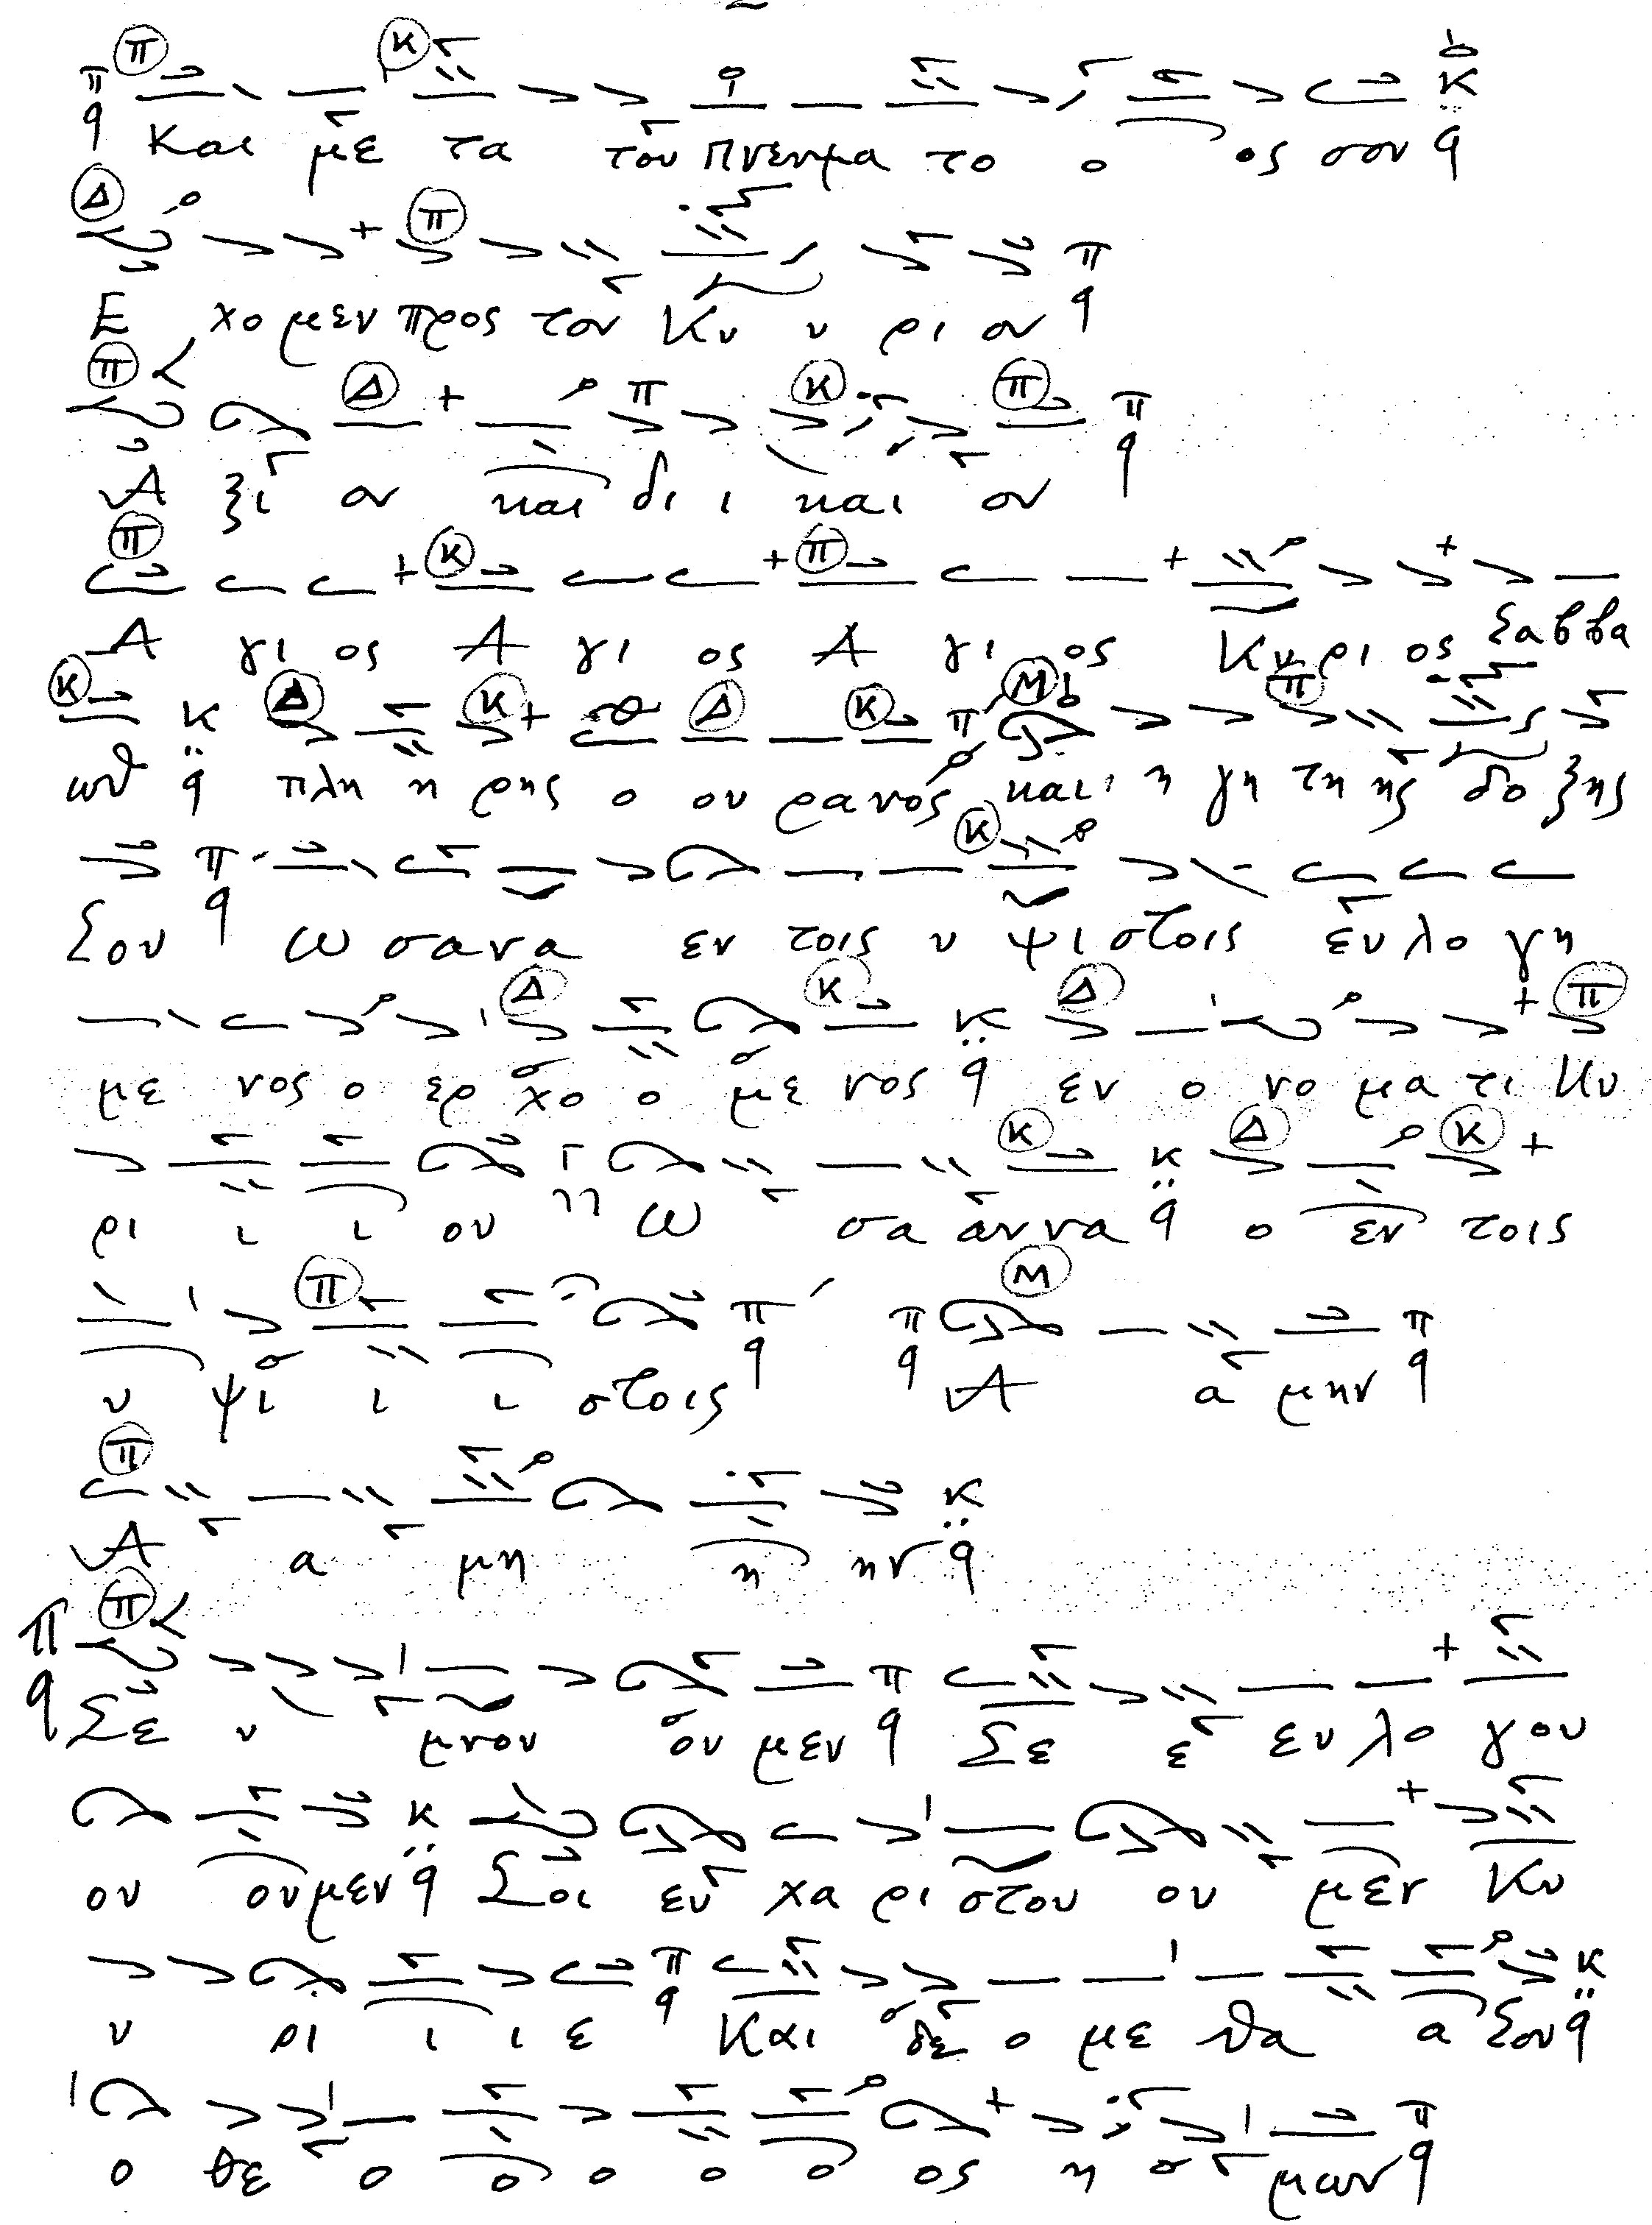 Και με τα του Πνευμα το ο ος σου
Ε χο μεν προς τον Κυ υ ρι ον
Α ξι ον και δι ι και ον
Α γι ος Α γι ος Α γι ος Κυ ρι ος Σαββα
ωθ πλη η ρης ο ου ρανος και η γη τη ης δο ξης
Σου ω σανα εν τοις υ ψι στοις ευ λο γη
με νος ο ερ χο ο με νος εν ο νο μα τι Κυ
ρι ι ι ου ω σα αννα ο εν τοις
υ ψι ι ι στοις Α α μην
Α α μη η ην
Σε υ μνου ου μεν Σε ε ευ λο γου
ου ουμεν Σοι ευ χα ρι στου ου μεν Κυ
υ ρι ι ι ε Και δε ο με θα α Σου
ο θε ο ο ο ο ο ος η μων